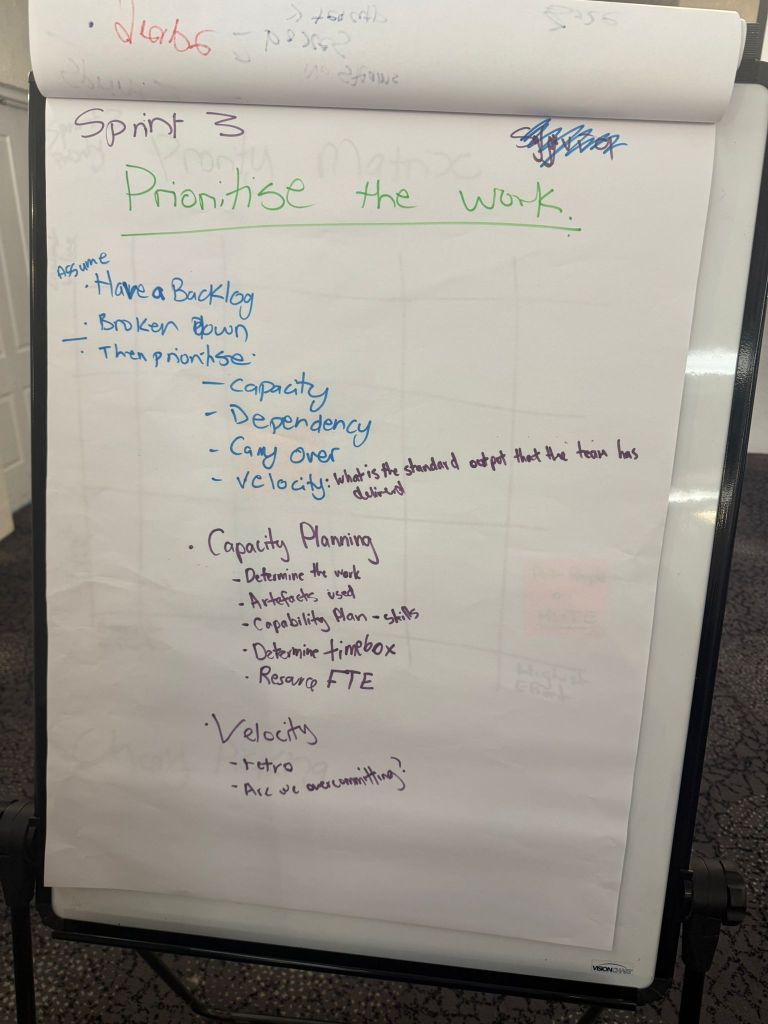 Sprint 3
Prioritise the work.
Assume
· Have a Backlog
· Broken Down
· Then prioritise:
- Capacity
- Dependency
- Carry Over
- Velocity: What is the standard output that the team has
delivered
· Capacity Planning
- Determine the work
- Artefacts used
- Capability Plan - skills
· Determine timebox
· Resource FTE
· Velocity
- retro
- Are we overcommitting?
VISIONCHART